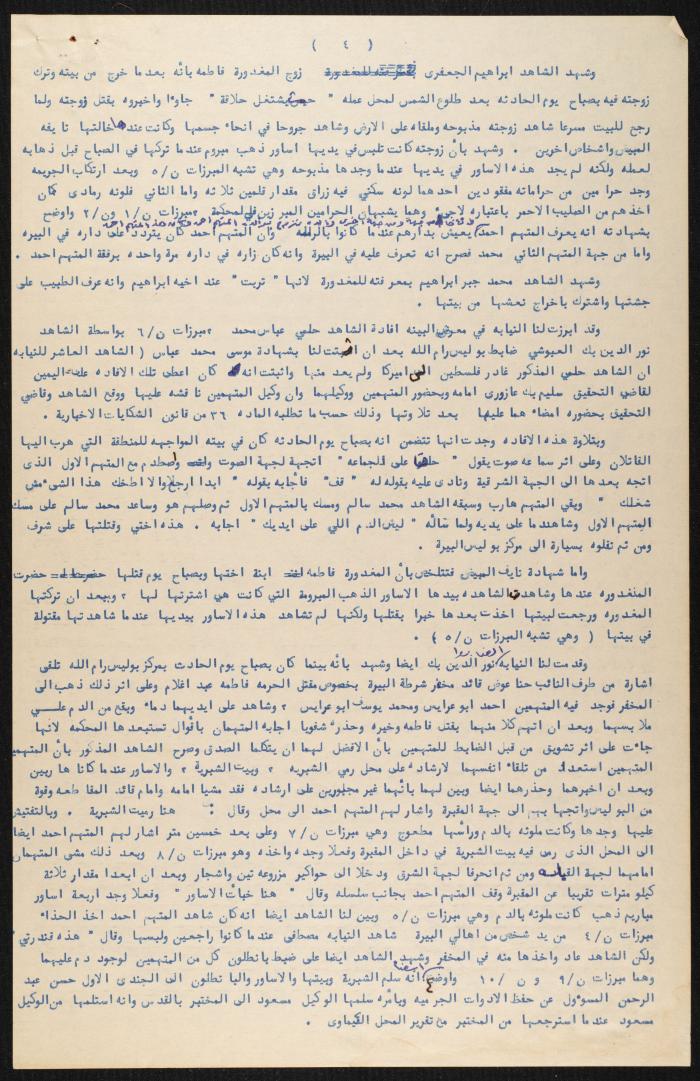 ( ٤ )
وشهد الشاهد ابراهيم الجعفرى زوج المغدورة فاطمه بأنه بعد ما خرج من بيته وترك
زوجته فيه بصباح يوم الحادثه بعد طلوع الشمس لمحل عمله " حيث يشتغل حلاقة " جاوءا واخبروه بقتل زوجته ولما
رجع للبيت مسرعا شاهد زوجته مذبوحه وملقاه على الارض وشاهد جروحا في انحاء جسمها وكانت عندها خالتها نايفه
المبيض واشخاص اخرين . وشهد بأن زوجته كانت تلبس في يديها اساور ذهب مبروم عندما تركها في الصباح قبل ذهابه
لعمله ولكنه لم يجد هذه الاساور في يديها عندما وجدها مذبوحه وهي تشبه المبرزات ن/٥ وبعد ارتكاب الجريمه
وجد حرامين من حراماته مفقودين احدهما لونه سكني فيه زراى مقدار قلمين ثلاثه واما الثاني فلونه رمادى كان
اخذهم من الصليب الاحمر باعتباره لاجيء وهما يشبهان الحرامين المبرزين في المحكمة مبرزات ن/١ ون/٢ واوضح
بشهادته انه يعرف المتهم احمد يعيش بدارهم عندما كانوا بالرمله وان المتهم احمد كان يتردد على داره في البيره
واما من جهة المتهم الثاني محمد فصرح انه تعرف عليه في البيرة وانه كان زاره في داره مرة واحده برفقة المتهم احمد .
وشهد الشاهد محمد جبر ابراهيم بمعرفته للمغدورة لانها " تربت " عند اخيه ابراهيم وانه عرف الطبيب على
جثتها واشترك باخراج نعشها من بيتها .
وقد ابرزت لنا النيابه في معرض البينه افادة الشاهد حلمي عباس محمد ٢ مبرزات ن/٦ بواسطة الشاهد
نور الدين بك العبوشي ضابط بوليس رام الله بعد ان اثبتت لنا بشهادة موسى محمد عباس ( الشاهد العاشر للنيابه
ان الشاهد حلمي المذكور غادر فلسطين الى اميركا ولم يعد منها واثبتت انه كان اعطى تلك الافاده على اليمين
لقاضي التحقيق سليم بك عازورى امامه وبحضور المتهمين ووكيلهما وان وكيل المتهمين ناقشه عليها ووقع الشاهد وقاضي
التحقيق بحضوره امضاءهما عليها بعد تلاوتها وذلك حسب ما تطلبه الماده ٣٦ من قانون الشكايات الاخبارية .
وبتلاوة هذه الافاده وجدت انها تتضمن انه بصباح يوم الحادثه كان في بيته المواجهه للمنطقة التي هرب اليها
القاتلان وعلى اثر سماعه صوت يقول " حلقوا على الجماعه " اتجهة لجهة الصوت واصطدم مع المتهم الاول الذى
اتجه بعدها الى الجهة الشرقية ونادى عليه بقوله له " قف " فأجابه بقوله " ابدا ارجع والا اطخك هذا الشيء مش
شغلك " وبقي المتهم هارب وسبقه الشاهد محمد سالم ومسك بالمتهم الاول ثم وصلهم هو وساعد محمد سالم على مسك
المتهم الاول وشاهد دما على يديه ولما سأله " ليش الدم اللي على ايديك " اجابه . هذه اختي وقتلتها على شرف
ومن ثم نقلوه بسيارة الى مركز بوليس البيرة .
واما شهادة نايف المبيض فتتلخص بأن المغدورة فاطمه ابنة اختها وبصباح يوم قتلها حضرت
المنغدوره عندها وشاهدت الشاهده بيدها الاساور الذهب المبرومة التي كانت هي اشترتها لها ٢ وبعد ان تركتها
المغدوره ورجعت لبيتها اخذت بعدها خبرا بقتلها ولكنها لم تشاهد هذه الاساور بيديها عندما شاهدتها مقتولة
في بيتها ( وهي تشبه المبرزات ن/٥ ) .
وقدمت لنا النيابه نور الدين بك ايضا وشهد بأنه بينما كان بصباح يوم الحادث بمركز بوليس رام الله تلقى
اشارة من طرف النائب حنا عوض قائد مخفر شرطة البيرة بخصوص مقتل الحرمه فاطمه عبد اغلام وعلى اثر ذلك ذهب الى
المخفر فوجد فيه المتهمين احمد ابو عرايس ومحمد يوسف ابو عرايس ٢ وشاهد على ايديهما دماء وبقع من الدم علـــى
ملابسهما وبعد ان اتهم كلا منهما بقتل فاطمه وخيره وحذره شفويا اجابه المتهمان بأقوال تستبعدها المحكمه لانها
جاءت على اثر تشويق من قبل الضابط للمتهمين بأن الافضل لهما ان يتكلما الصدق وصرح الشاهد المذكور بأن المتهمين
المتهمين استعدا من تلقاء انفسهما لارشاده على محل رمي الشبريه ٢ وبيت الشبرية ٢ والاساور عندما كانا هاربين
وبعد ان اخبرهما وحذرهما ايضا وبين لهما بأنهما غير مجبورين على ارشاده فقد مشيا امامه وامام قائد المقاطعه وقوة
من البوليس واتجها بهم الى جهة المقبرة واشار لهم المتهم احمد الى محل وقال : هنا رميت الشبرية . وبالتفتيش
عليها وجدها وكانت ملوثه بالدم ورأسها مطعوج وهي مبرزات ن/٧ وعلى بعد خمسين متر اشار لهم المتهم احمد ايضا
الى المحل الذى رمى فيه بيت الشبرية في داخل المقبرة وفعلا وجده واخذه وهو مبرزات ن/٨ وبعد ذلك مشى المتهمان
امامهما لجهة ومن ثم انحرفا لجهة الشرق ودخلا الى حواكير مزروعه تين واشجار وبعد ان ابعدا مقدار ثلاثة
كيلو مترات تقريبا عن المقبرة وقف المتهم احمد بجانب سلسله وقال " هنا خبأت الاساور " وفعلا وجد اربعة اساور
مباريم ذهب كانت ملوثه بالدم وهي مبرزات ن/٥ وبين لنا الشاهد ايضا انه كان شاهد المتهم احمد اخذ الحذاء
مبرزات ن/٤ من يد شخص من اهالي البيرة شاهد النيابه مصطفى عندما كانوا راجعين ولبسها وقال " هذه قندرتي "
ولكن الشاهد عاد واخذها منه في المخفر وشهد الشاهد ايضا على ضبط بانطلون كل من المتهمين لوجود دم عليهما
وهما مبرزات ن/٩ و ن/١٠ واوضح انه سلم الشبرية وبيتها والاساور والبانطلون الى الجندى الاول حسن عبد
الرحمن المسوءول عن حفظ الادوات الجرميه وبأمره سلمها الوكيل مسعود الى المختبر بالقدس وانه استلمها من الوكيل
مسعود عندما استرجعها من المختبر مع تقرير المحل الكيماوى .